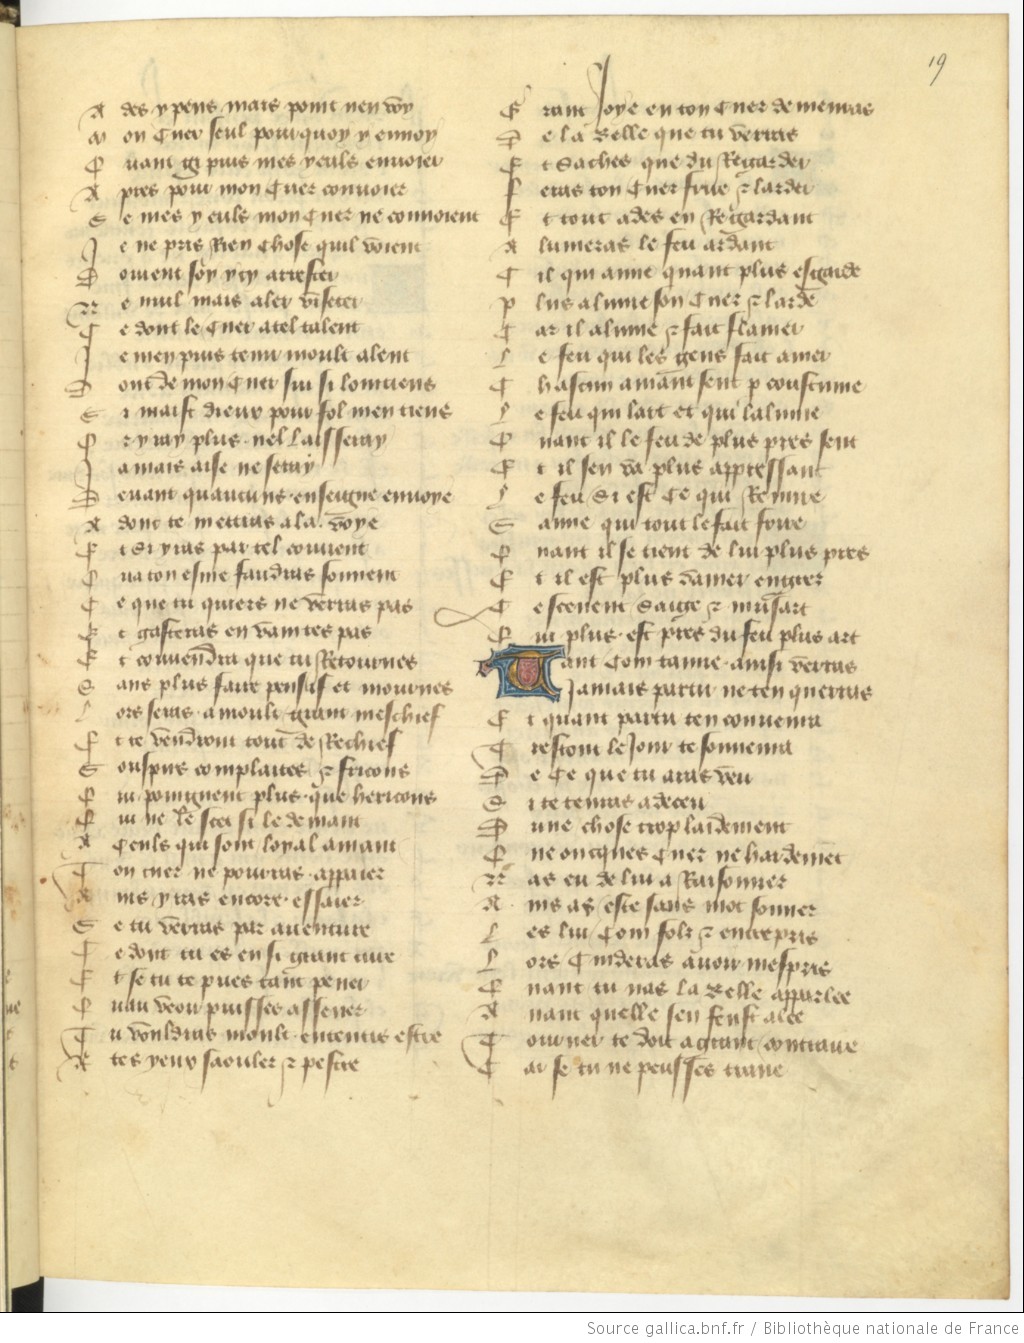 19
A des y pens mais point nen voy
M on Cuer seul pour quoy y envoy
Q uant gi puis mes yeuls envoier
A pres pour mon Cuer convoier
S e mes yeuls mon Cuer ne convoient
J e ne pris Rien chose quil voient
D oivent soy y cy arrester
N e nul mais aler viseter
C e dont le Cuer a tel talent
J e men puis tenir moult a lent
D ont de mon Cuer sui si lointiens
S i maist dieux pour fol men tiens
O r y ray plus nel laisseray
J a mais aise ne seray
D evant quaucuns enseigne envoye
A dont te mettras a la voye
E t Si yras par tel couvent
Q ua ton esme faudras souvent
C e que tu quiers ne verras pas
E t gasteras en vain tes pas
E t convendra que tu Retournes
S ans plus faire pensis et mournes
L ors seras a moult grant meschief
E t te vendront tout de Rechief
S ouspirs complaites et fricons
Q ui poignent plus que hericons
Q ui ne le scet si le demant
A Ceuls qui sont loyal amant
T on cuer ne pourras appaier
A ins yras encore essaier
S e tu verras par aventure
C e dont tu es en si grant cure
E t se tu te pues tant pener
Q uau veoir puisses assener
T u vouldras moult ententis estre
A tes yeux saouler et pestre
G rant Joye en ton Cuer demenras
D e la Belle que tu verras
E t Saches que du Regarder
F eras ton Cuer frire et larder
E t tout ades en Regardant
A lumeras le feu ardant
C il qui aime quant plus esgarde
P lus alume son Cuer et larde
C ar il alume et fait flamer
L e feu qui les gens fait amer
C hascun amant sent p coustume
L e feu qui lart et qui lalume
Q uant il le feu de plus pres sent
E t il sen va plus appressant
L e feu Si est Ce qui Remire
S amie qui tout le fait frire
Q uant il se tient de lui plus pres
E t il est plus damer engrer
C e scevent Saige et musart
Q ui plus est pres du feu plus art
T ant Com tamie ainsi verras
Jamais partir ne ten querras
E t quant partir ten convenra
T restout le Jour te souvenra
D e Ce que tu aras veu
S i te tenras a deceu
D une chose trop laidement
Q ne oncques Cuer ne hardemet
N as eu de lui a Raisonner
A ins as este sans mot sonner
L es lui Com folz et entrepris
L ors Cuideras avoir mespris
Q uant tu nas la Belle apparlee
A vant quelle sen feust alee
T ourner te doit a grant contraire
C ar se tu ne peusses traire
Source gallica.bnf.fr / Bibliothèque nationale de France